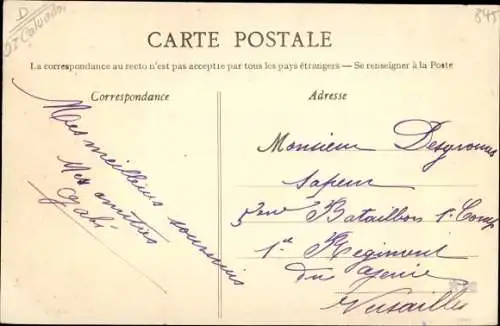 D
Dt Calvados
845
CARTE POSTALE
La correspondance au recto n'est pas acceptée par tous les pays étrangers — Se renseigner à la Poste
Correspondance
Mes meilleurs souvenirs
Mes amitiés
Gabi
Adresse
Monsieur Desgronas
Sapeur
5ème Bataillon 1e Comp
1er Régiment
du génie
Versailles